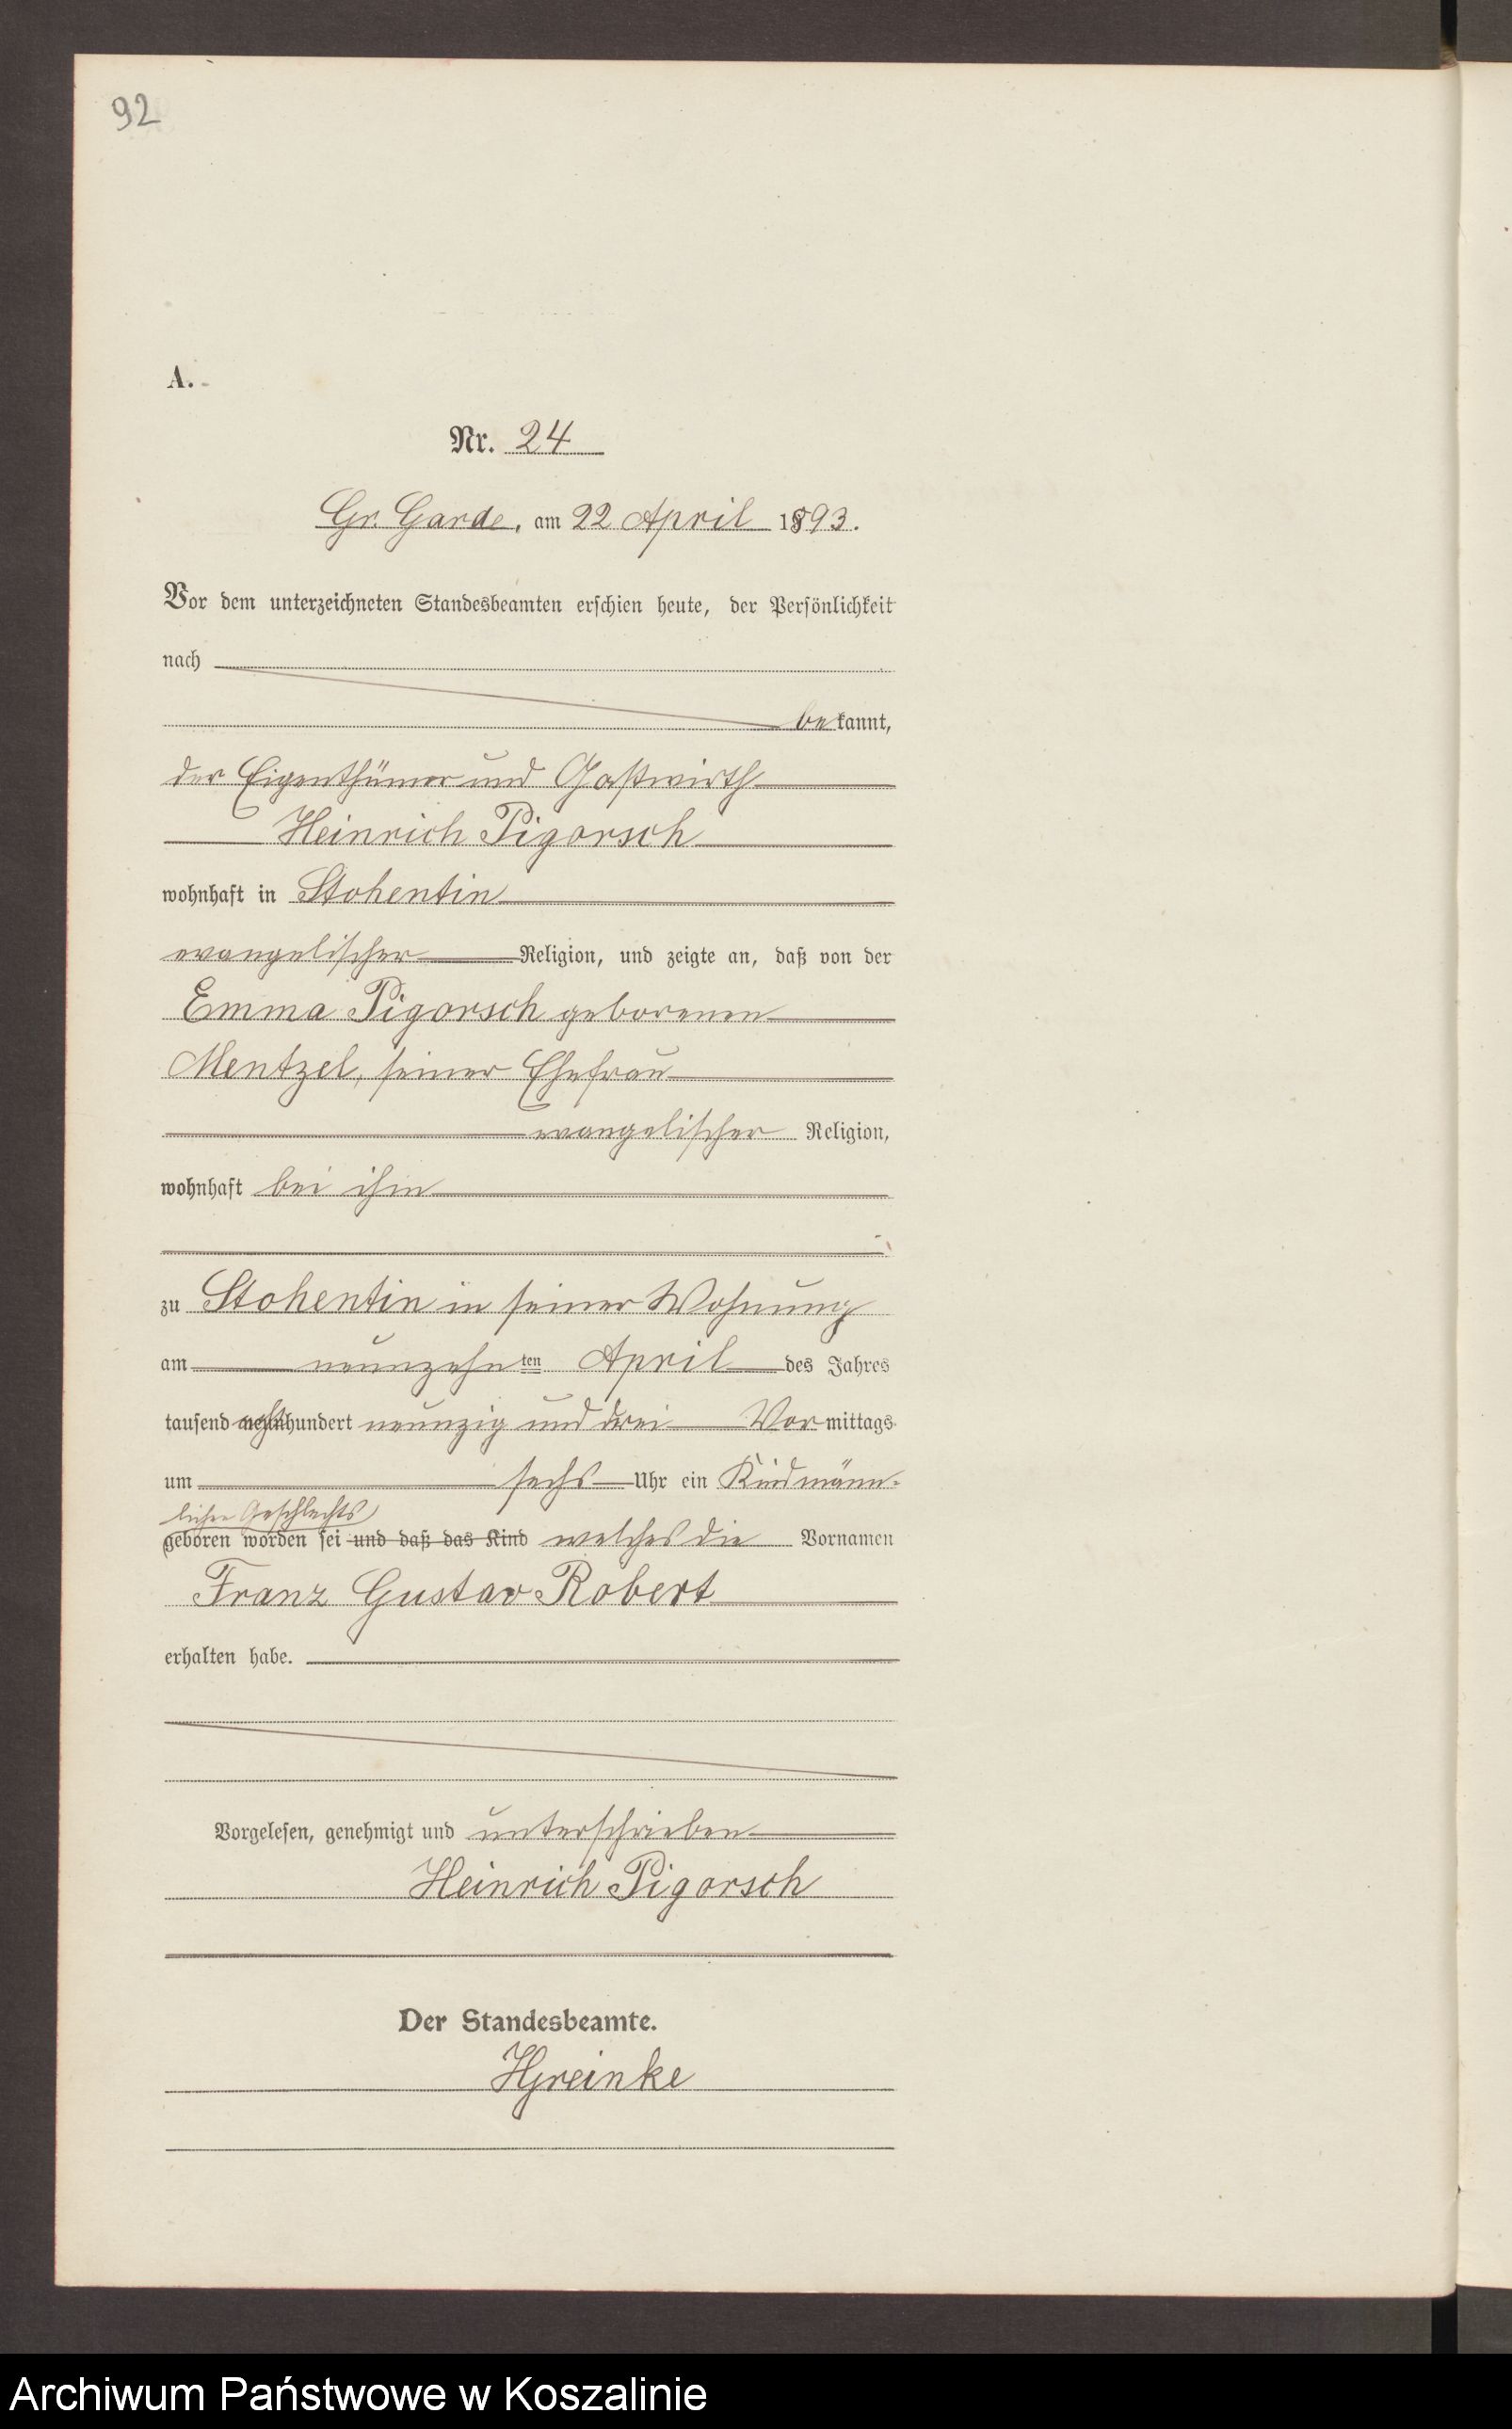 92
A.
Nr. 24
Gr. Garde, am 22 April 1893.
Vor dem unterzeichneten Standesbeamten erschien heute, der Persönlichkeit
nach
bekannt,
der Eigenthümer und Gastwirth
Heinrich Pigorsch
wohnhaft in Stohentin
evangelischer Religion, und zeigte an, daß von der
Emma Pigorsch geborenen
Mentzel, seiner Ehefrau
evangelischer Religion,
wohnhaft bei ihm
zu Stohentin in seiner Wohnung
am neunzehnten April des Jahres
tausend achthundert neunzig und drei Vormittags
um sechs Uhr ein Kind männ-
lichen Geschlechts
geboren worden sei und daß das Kind welches die Vornamen
Franz Gustav Robert
erhalten habe.
Vorgelesen, genehmigt und unterschrieben
Heinrich Pigorsch
Der Standesbeamte.
HGreinke
Archiwum Państwowe w Koszalinie